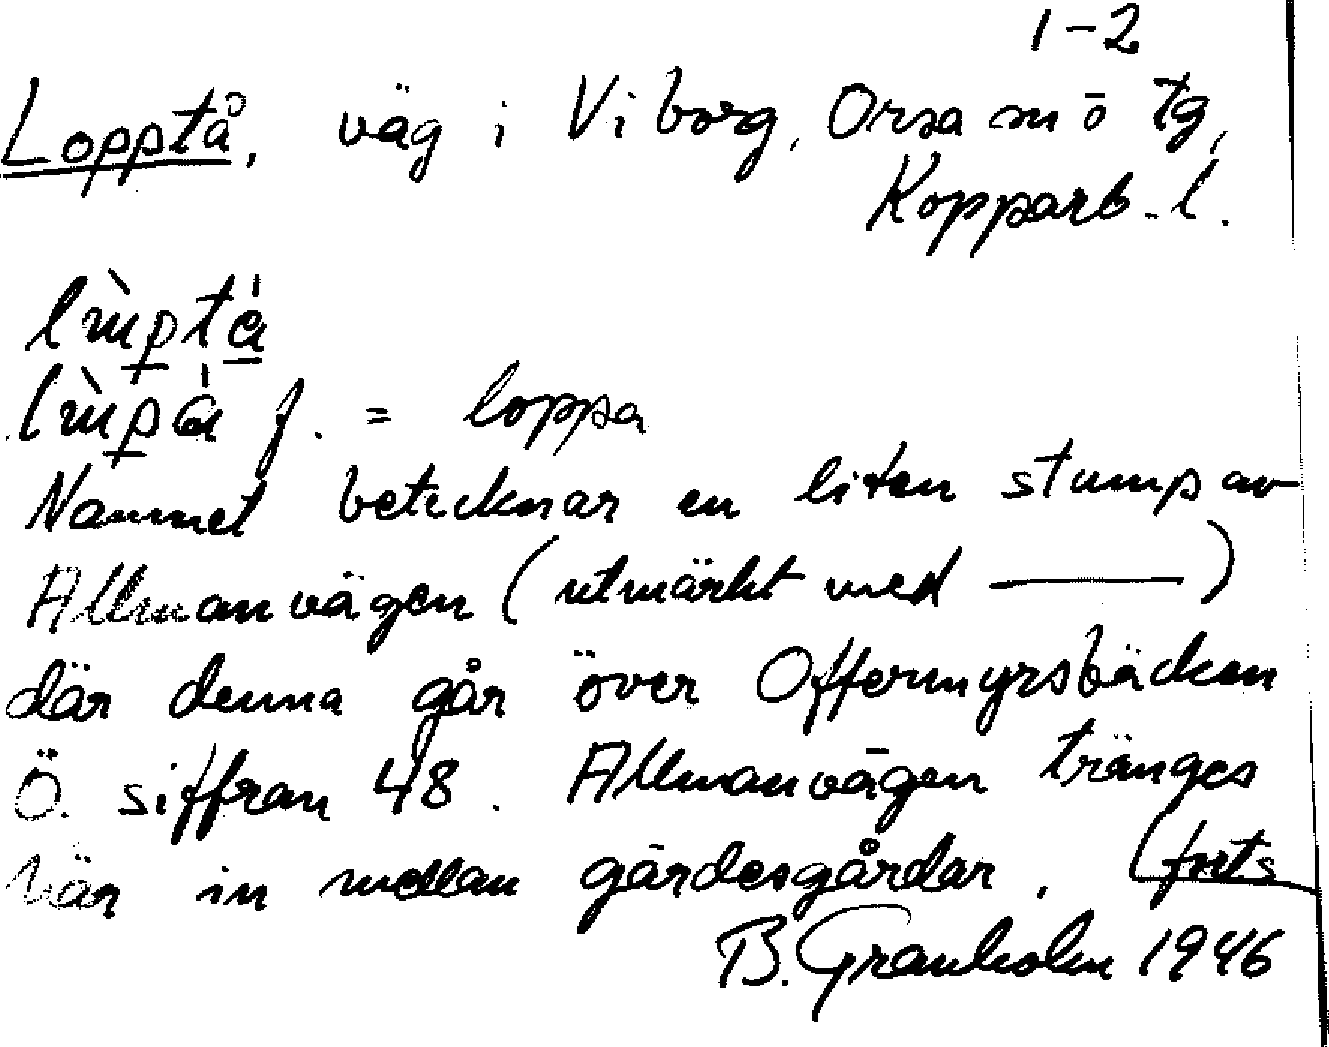 1-2
Lopptå, väg i Viborg, Orsa sn ö tg,
Kopparb. l.
f. = loppa
Namnet betecknar en liten stump av
Allmanvägen (utmärkt med ———)
där denna går över Offermyrsbäcken
Ö. siffran 48. Allmanvägen tränges
här in mellan gärdesgårdar. (forts
B. Granholm 1946